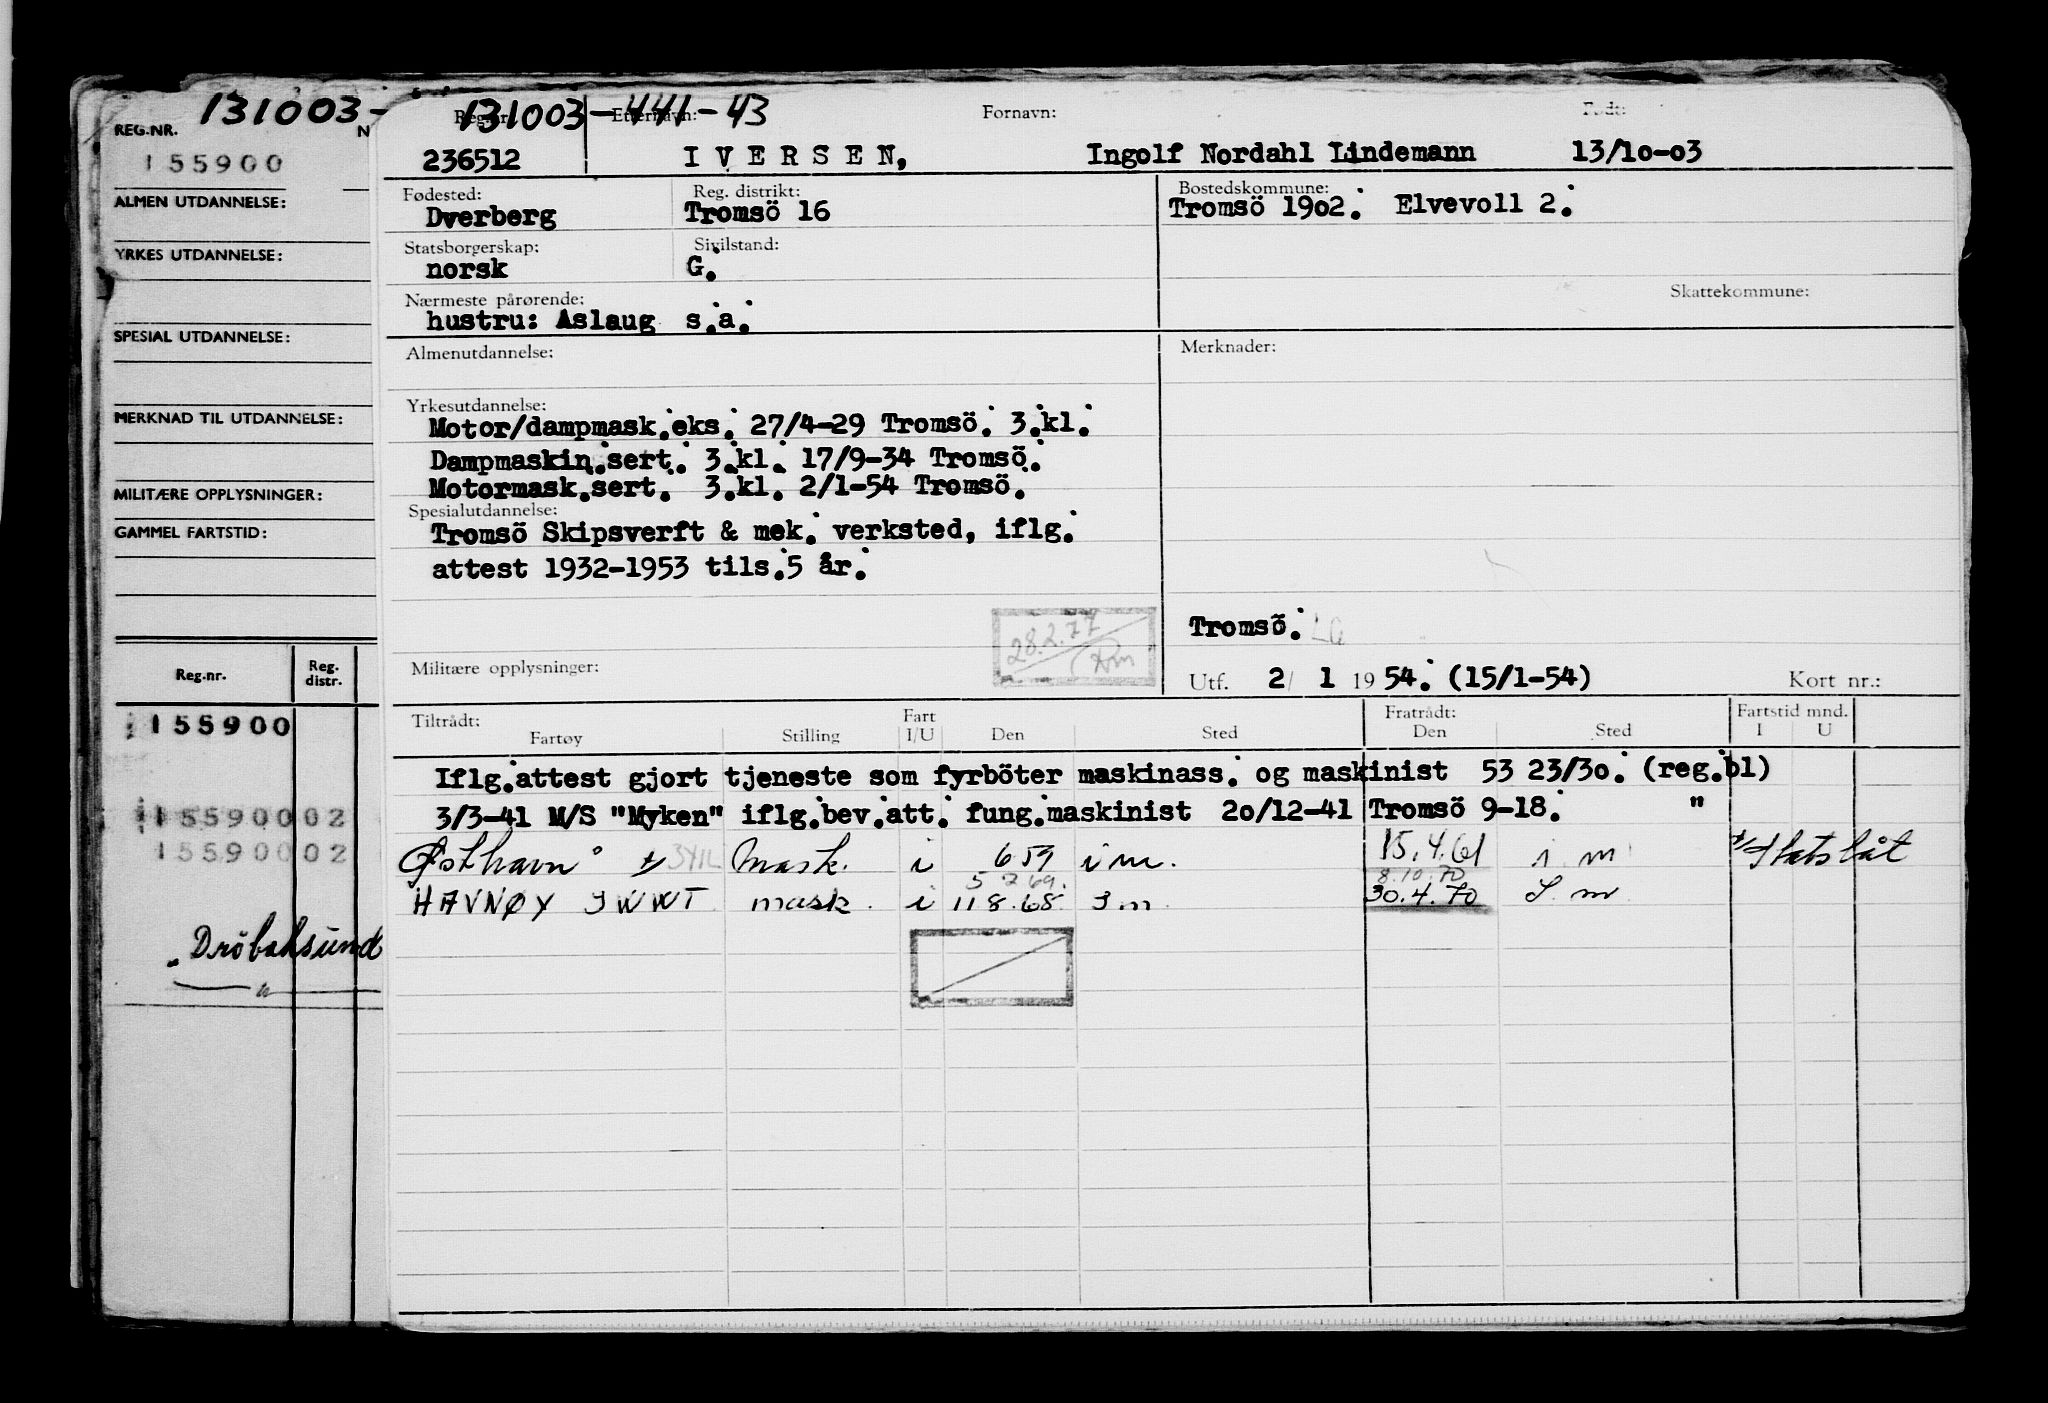 131003-
REG.NR.
N
155900
ALMEN UTDANNELSE:
YRKES UTDANNELSE:
SPESIAL UTDANNELSE:
MERKNAD TIL UTDANNELSE:
MILITÆRE OPPLYSNINGER:
GAMMEL FARTSTID:
Reg.nr. Reg. distr.
155900
155900 02
155900 02
Dröbaksund
"
131003-441-43
Reg.nr. Etternavn: Fornavn: Født:
236512 IVERSEN, Ingolf Nordahl Lindemann 13/10-03
Fødested: Reg. distrikt: Bostedskommune:
Dverberg Tromsö 16 Tromsö 1902. Elvevoll 2.
Statsborgerskap: Sivilstand:
norsk G.
Nærmeste pårørende: Skattekommune:
hustru: Aslaug s.a.
Almenutdannelse: Merknader:
Yrkesutdannelse:
Motor/dampmask.eks. 27/4-29 Tromsö. 3.kl.
Dampmaskin.sert. 3.kl. 17/9-34 Tromsö.
Motormask.sert. 3.kl. 2/1-54 Tromsö.
Spesialutdannelse:
Tromsö Skipsverft & mek. verksted, iflg.
attest 1932-1953 tils.5 år.
28.2.77
Tromsö.
Militære opplysninger:
Utf. 2/ 1 1954. (15/1-54) Kort nr.:
Tiltrådt: Fart Fratrådt: Fartstid mnd.
Fartøy Stilling I/U Den Sted Den Sted I U
Iflg.attest gjort tjeneste som fyrböter maskinass. og maskinist 53 23/30. (reg.bl)
3/3-41 M/S "Myken" iflg.bev.att. fung.maskinist 20/12-41 Tromsö 9-18. "
Østhavn Mask. i 6 59 i m. 15.4.61 i m Statsbåt
5 2 69. 8.10.70
HAVNØY JWWT mask. i 11 8.68 I m 30.4.70 I m